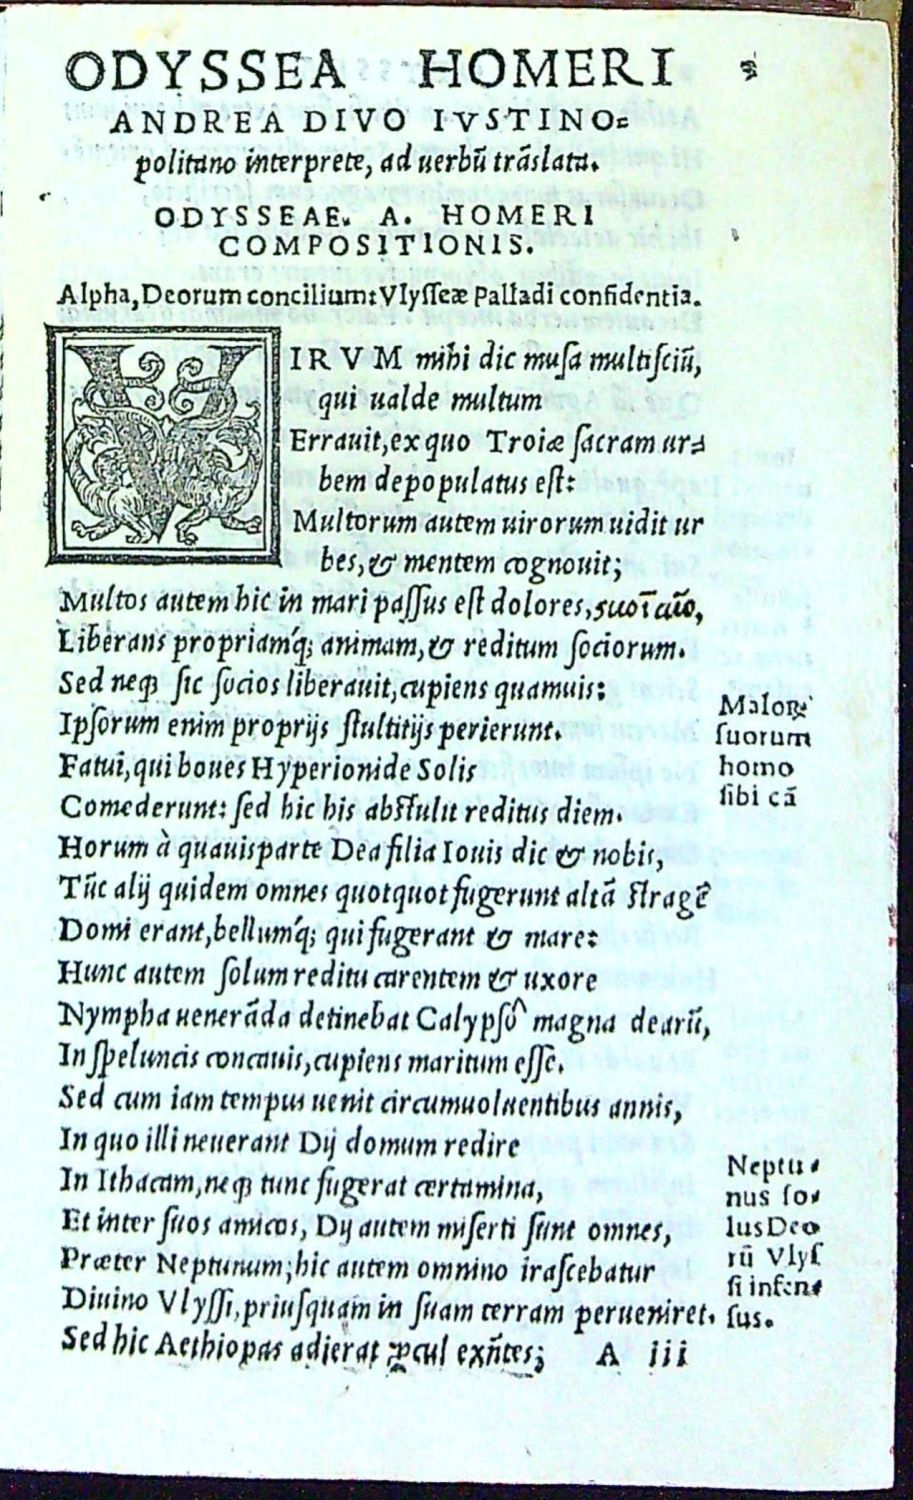 ODYSSEA HOMERI 3
ANDREA DIVO IVSTINO=
politano interprete, ad uerbũ trãslata.
ODYSSEAE. A. HOMERI
COMPOSITIONIS.
Alpha, Deorum concilium: Vlysseæ Palladi confidentia.
VIRVM mihi dic musa multisciũ,
qui ualde multum
Errauit, ex quo Troiæ sacram ur=
bem depopulatus est:
Multorum autem uirorum uidit ur
bes, & mentem cognouit;
Multos autem hic in mari passus est dolores, suo ĩ aĩo,
Liberans propriamq́; animam, & reditum sociorum.
Sed neqꝫ sic socios liberauit, cupiens quamuis:
Ipsorum enim proprijs stultitijs perierunt.
Fatui, qui boues Hyperionide Solis
Comederunt: sed hic his abstulit reditus diem.
Horum à quauisparte Dea filia Iouis dic & nobis,
Tũc alij quidem omnes quotquot fugerunt altã stragẽ
Domi erant, bellumq́; qui fugerant & mare:
Hunc autem solum reditu carentem & uxore
Nympha uenerãda detinebat Calypsô magna dearũ,
In speluncis concauis, cupiens maritum esse.
Sed cum iam tempus uenit circumuoluentibus annis,
In quo illi neuerant Dij domum redire
In Ithacam, neqꝫ tunc fugerat certamina,
Et inter suos amicos, Dij autem miserti sunt omnes,
Præter Neptunum; hic autem omnino irascebatur
Diuino Vlyssi, priusquam in suam terram perueniret.
Sed hic Aethiopas adierat ꝓcul exñtes;
A iii
Maloꝝ
suorum
homo
sibi cã
Neptu=
nus so=
lus Deo
rũ Vlys
si infen=
sus.